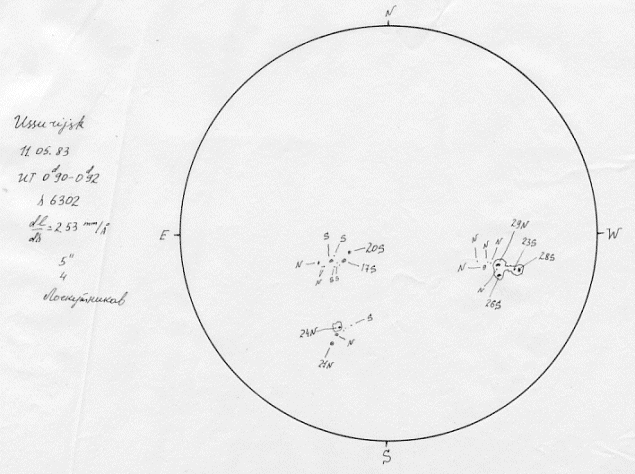 N
Ussurijsk
11 05. 83
UT 0ᵈ90-0ᵈ92
λ 6302
dl/dλ = 253 mm/Å
5"
4
Лоскутников
E
W
S
S S
20S
N
17S
N SS
29N
N N N
23S
N
28S
N
26S
24N
S
N
21N